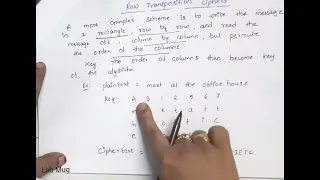 Row Transposition Ciphers
A more complex scheme is to write the message
in a rectangle, row by row, and read the
message off, column by column, but permute
the order of the columns
key. The order of columns then become key
of the algorithm
Ex: plaintext = meet at the office house
key = 4 3 1 2 5 6 7
e t a t t
h i c
e
Ciphertext IETC
Lab Mug